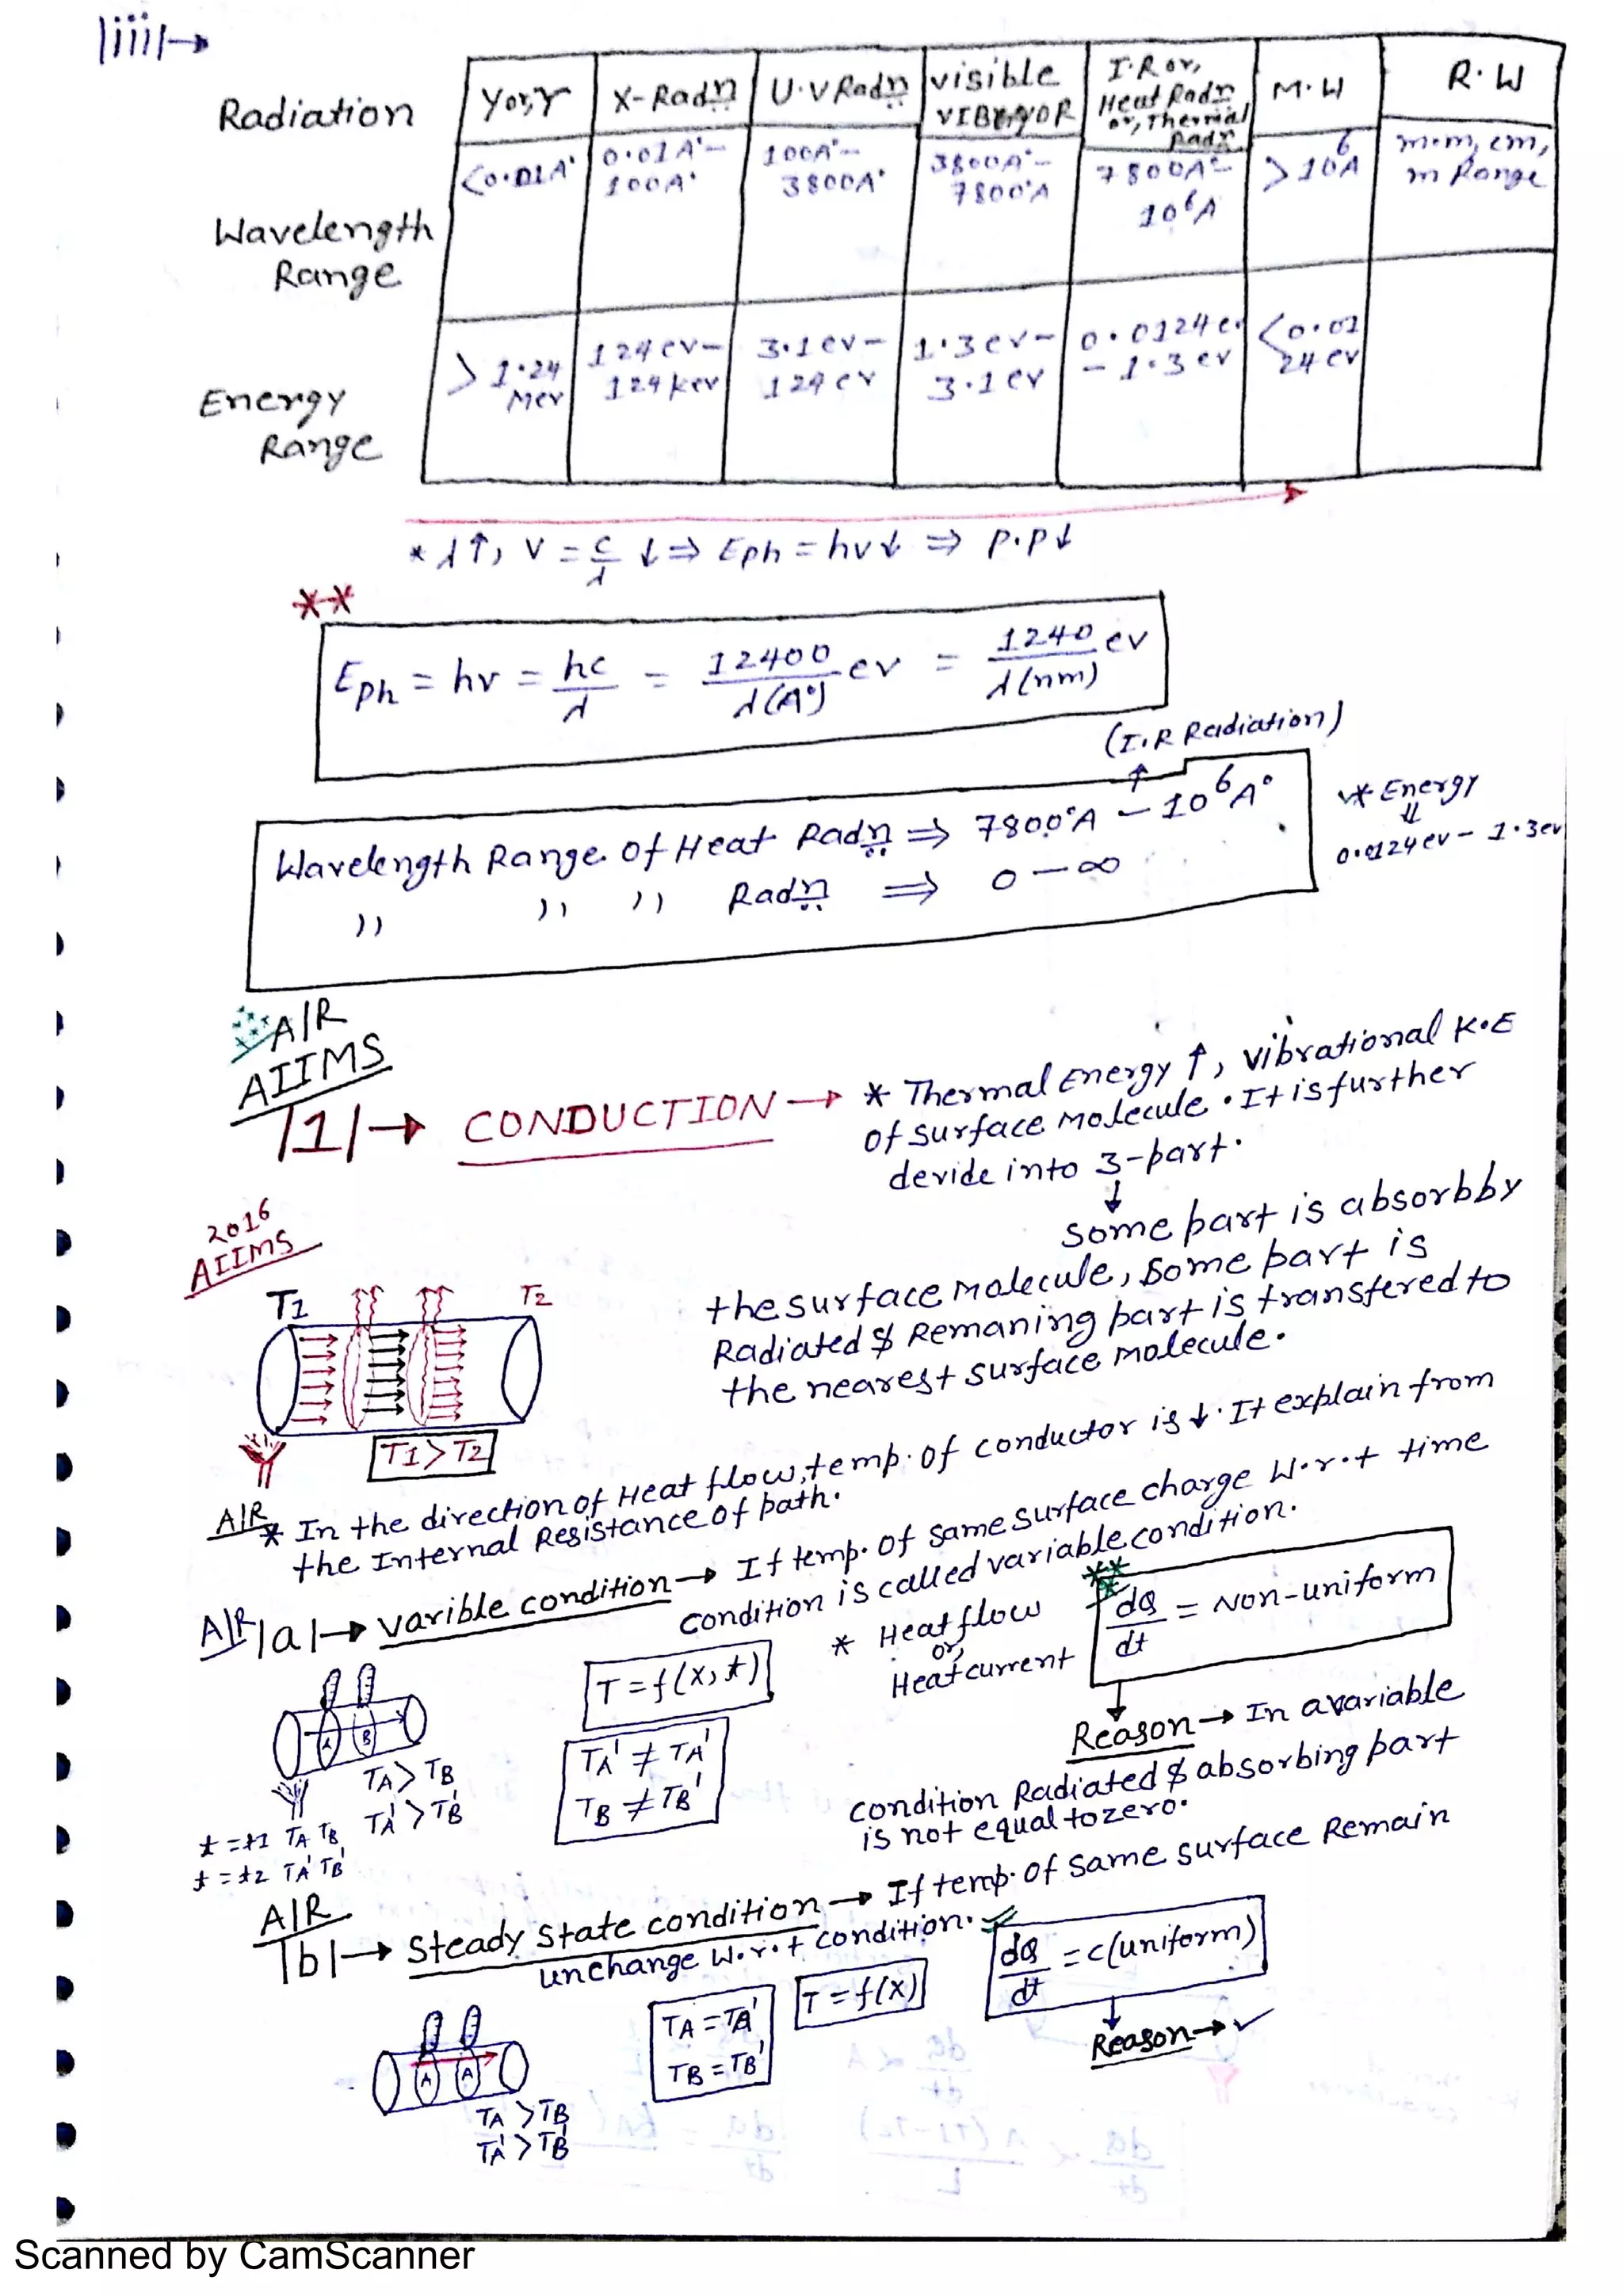 |iii|→
Radiation | γ or, r | X-Radn | U.V Radn | visible VIBgyOR | I.R or, Heat Radn or, Thermal Radn | M.W | R.W
Wavelength Range | <0.01A° | 0.01A°– 100A° | 100A°– 3800A° | 3800A°– 7800°A | 7800A°– 10⁶A | >10⁶A | m.m, cm, m Range
Energy Range | > 1.24 Mev | 124ev– 124kev | 3.1ev– 124ev | 1.3ev– 3.1ev | 0.0124ev – 1.3ev | <0.0124ev
* λ↑, ν = c/λ ↓ ⇒ Eph = hν↓ ⇒ P.P↓
**
Eph = hν = hc/λ = 12400/λ(A°) ev = 1240/λ(nm) ev
(I.R Radiation)
↑
Wavelength Range of Heat Radn ⇒ 7800°A – 10⁶A°
,, ,, ,, Radn ⇒ 0 – ∞
* Energy
⇓
0.0124ev – 1.3ev
A|R
AIIMS
|1|→ CONDUCTION → * Thermal Energy ↑, vibrational K.E
of surface Molecule. It is further
devide into 3-part.
↓
some part is absorbby
the surface molecule, some part is
Radiated & Remaning part is transfered to
the nearest surface molecule.
2016
AIIMS
T1 T2
T1 > T2
A|R * In the direction of Heat flow, temp. of conductor is ↓. It explain from
the Internal Resistance of path.
A|R |a|→ varible condition → If temp. of same surface charge W.r.t time
condition is called variable condition.
* Heat flow
or,
Heat current
**
*
dQ/dt = Non-uniform
T = f(x, t)
TA' ≠ TA'
TB ≠ TB'
A B
TA > TB
TA' > TB'
t = t1 TA TB
t = t2 TA' TB'
↓
Reason → In avariable
condition Radiated & absorbing part
is not equal to zero.
A|R
|b|→ Steady State condition → If temp. of same surface Remain
unchange W.r.t condition.
dQ/dt = c(uniform)
TA = TA'
TB = TB'
T = f(x)
↓
Reason → ✓
A A
TA > TB
TA' > TB'
Scanned by CamScanner